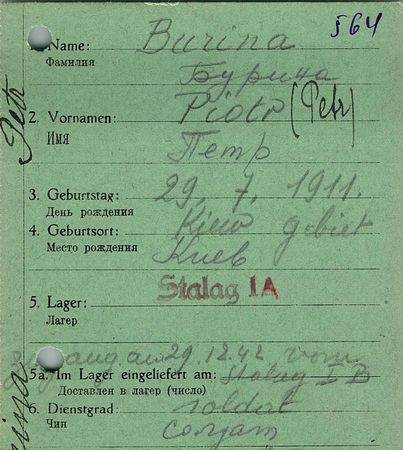 564
1. Name: Burina
Фамилия
Бурина
2. Vornamen: Piotr (Petr)
Имя
Петр
Petr
3. Geburtstag: 29. 7. 1911.
День рождения
4. Geburtsort: Kiew gebiet
Место рождения
Киев
Stalag IA
5. Lager:
Лагерь
29.12.42 vom
5a. Im Lager eingeliefert am: Stalag I B
Доставлен в лагерь (число)
6. Dienstgrad: soldat
Чин
солдат